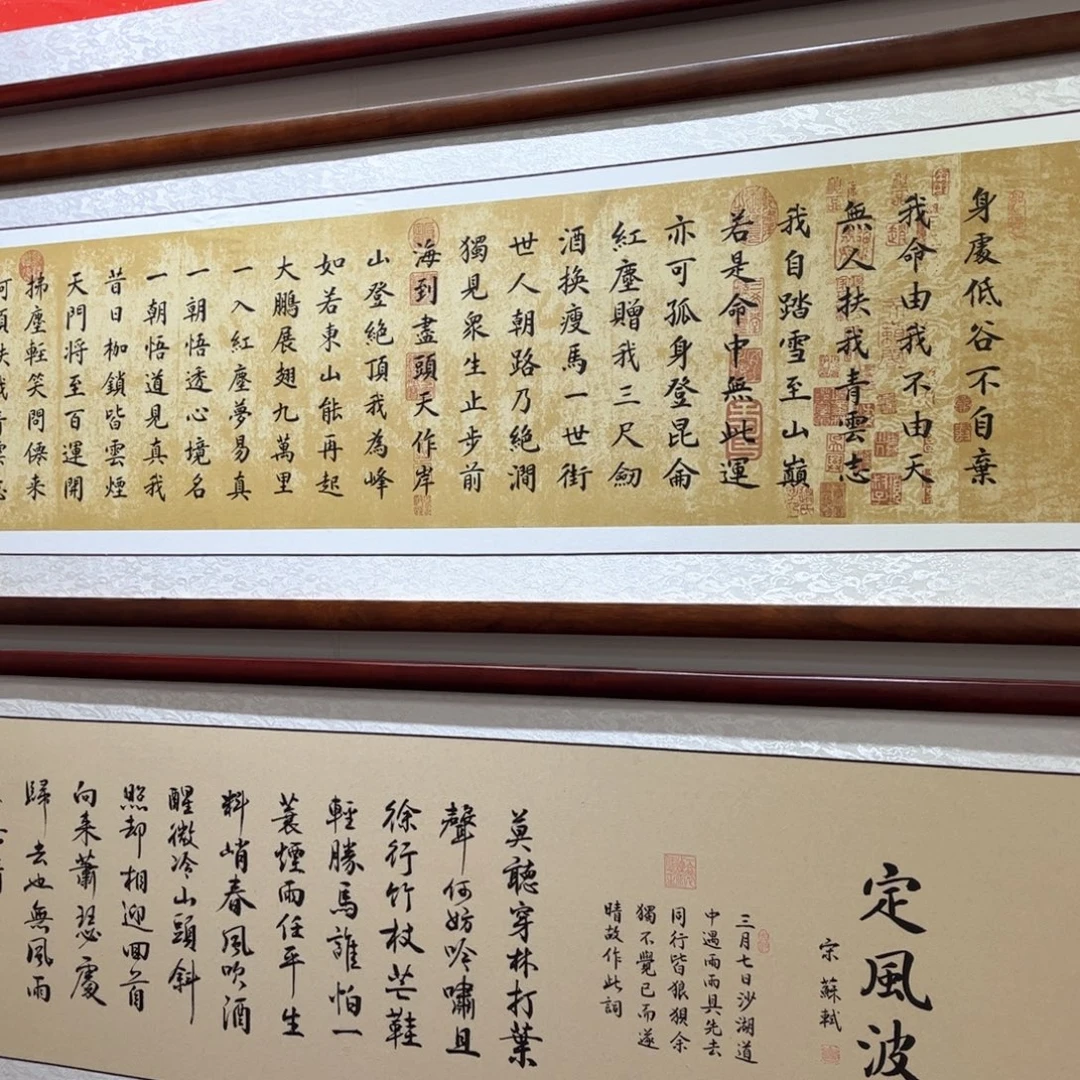 身處低谷不自棄
我命由我不由天
無人扶我青雲志
我自踏雪至山巔
若是命中無此運
亦可孤身登昆侖
紅塵贈我三尺劍
酒換瘦馬一世街
世人朝路乃絕澗
獨見衆生止步前
海到盡頭天作岸
山登絕頂我為峰
如若東山能再起
大鵬展翅九萬里
一入紅塵夢易真
一朝悟透心境名
一朝悟道見真我
昔日枷鎖皆雲煙
天門將至百運開
拂塵輕笑問僊来
定風波
宗 蘇軾
三月七日沙湖道
中遇雨雨具先去
同行皆狼狽余
獨不覺已而遂
晴故作此詞
莫聽穿林打葉
聲何妨吟嘯且
徐行竹杖芒鞋
輕勝馬誰怕一
蓑煙雨任平生
料峭春風吹酒
醒微冷山頭斜
照却相迎回首
向来蕭瑟處
歸去也無風雨